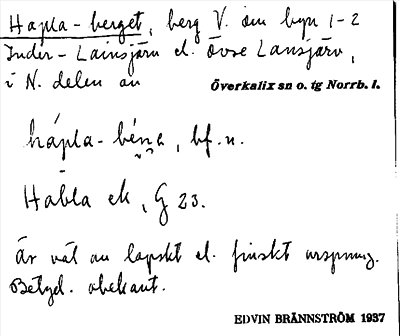 Hapla-berget, berg V. om byn 1-2
Inder-Lainsjärv el. Övre Lansjärv,
i N. delen av
Överkalix sn o. tg Norrb. l.
hápla-bén̥a, bf. n.
Habla ek, G 23.
Är väl av lapskt el. finskt ursprung.
Betyd. obekant.
EDVIN BRÄNNSTRÖM 1937